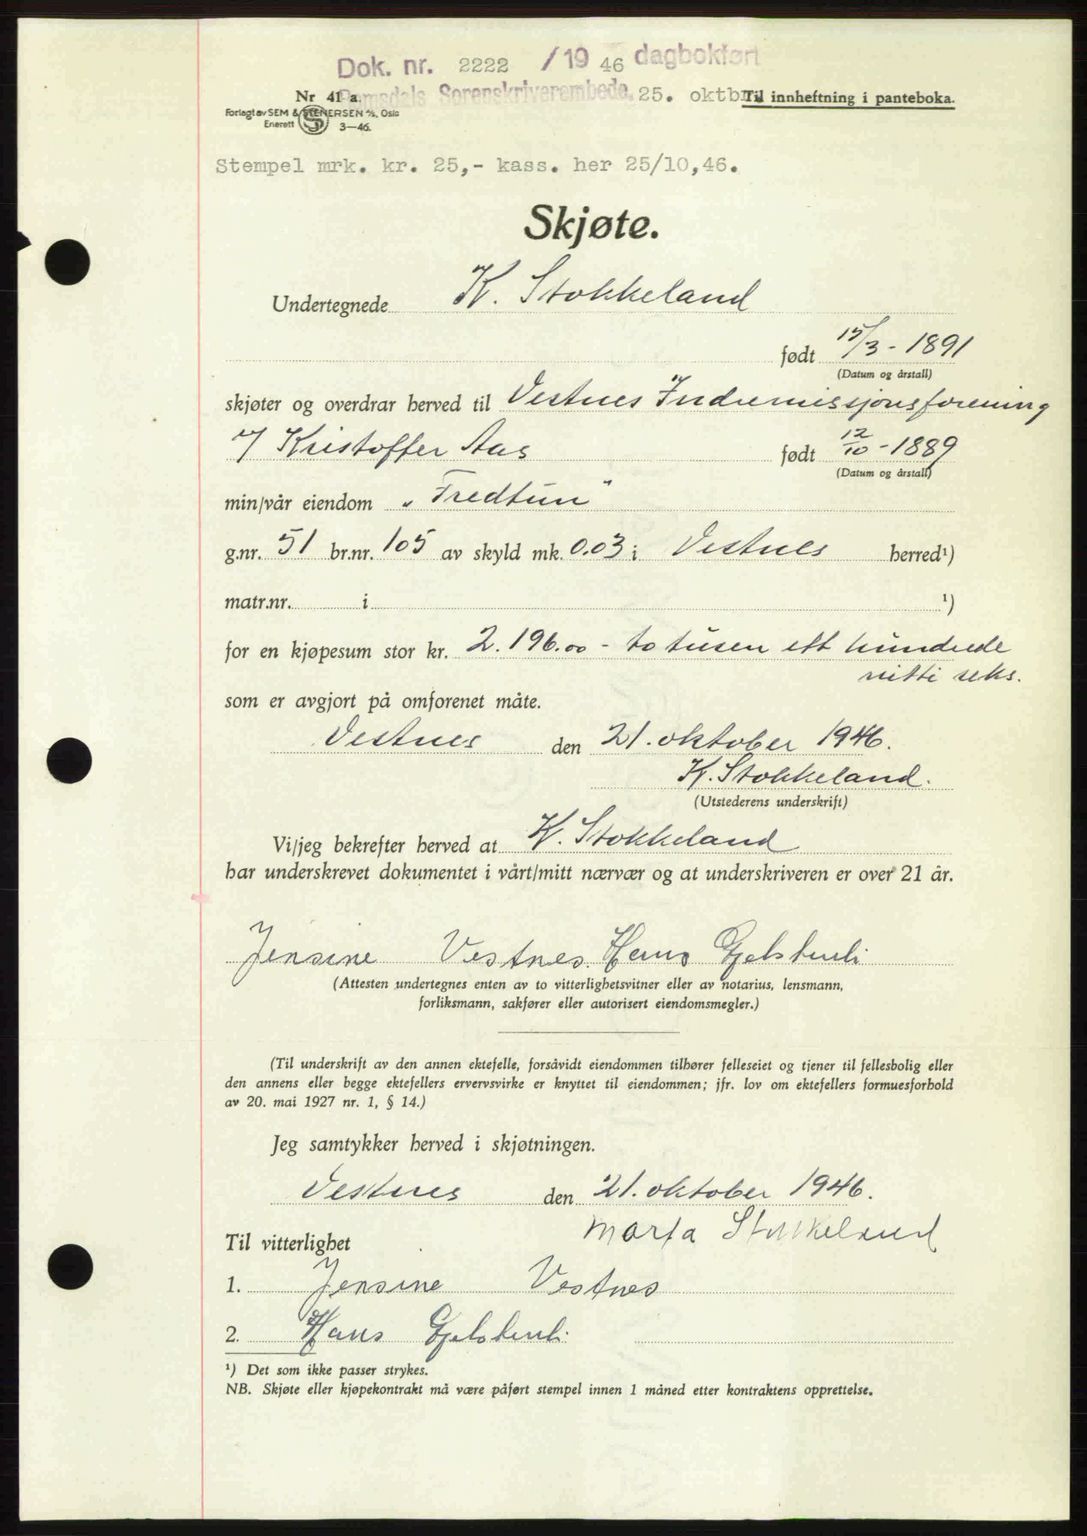 Dok. nr. 2222 /19 46 dagbokført
Nr 41 a. Romsdals Sorenskriverembede. 25. oktbr. Til innheftning i panteboka.
Forlagt av SEM & STENERSEN A/S, Oslo
Enerett 3—46.
Stempel mrk. kr. 25,- kass. her 25/10,46.
Skjøte.
Undertegnede K. Stokkeland
født 15/3 - 1891
(Datum og årstall)
skjøter og overdrar herved til Vestnes Indremissjonsforening
v/ Kristoffer Aas født 12/10 - 1889
(Datum og årstall)
min/vår eiendom „Fredtun"
g.nr. 51 br.nr. 105 av skyld mk. 0.03 i Vestnes herred¹)
matr.nr. i ¹)
for en kjøpesum stor kr. 2.196.00 - to tusen ett hundrede
nitti seks.
som er avgjort på omforenet måte.
Vestnes den 21. oktober 1946.
K. Stokkeland.
(Utstederens underskrift)
Vi/jeg bekrefter herved at K. Stokkeland
har underskrevet dokumentet i vårt/mitt nærvær og at underskriveren er over 21 år.
Jensine Vestnes. Hans
(Attesten undertegnes enten av to vitterlighetsvitner eller av notarius, lensmann,
forliksmann, sakfører eller autorisert eiendomsmegler.)
(Til underskrift av den annen ektefelle, forsåvidt eiendommen tilhører felleseiet og tjener til fellesbolig eller
den annens eller begge ektefellers ervervsvirke er knyttet til eiendommen; jfr. lov om ektefellers formuesforhold
av 20. mai 1927 nr. 1, § 14.)
Jeg samtykker herved i skjøtningen.
Vestnes den 21. oktober 1946.
Marta Stokkeland
Til vitterlighet
1. Jensine Vestnes
2. Hans
¹) Det som ikke passer strykes.
NB. Skjøte eller kjøpekontrakt må være påført stempel innen 1 måned etter kontraktens opprettelse.